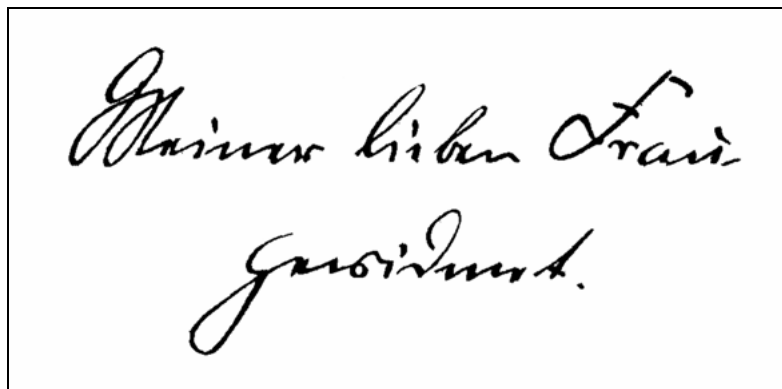 Meiner lieben Frau
gewidmet.